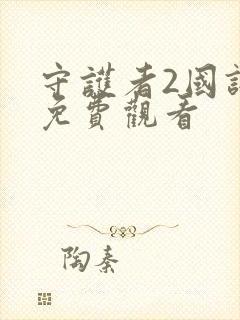 守護者2國語
免費觀看
陶秦